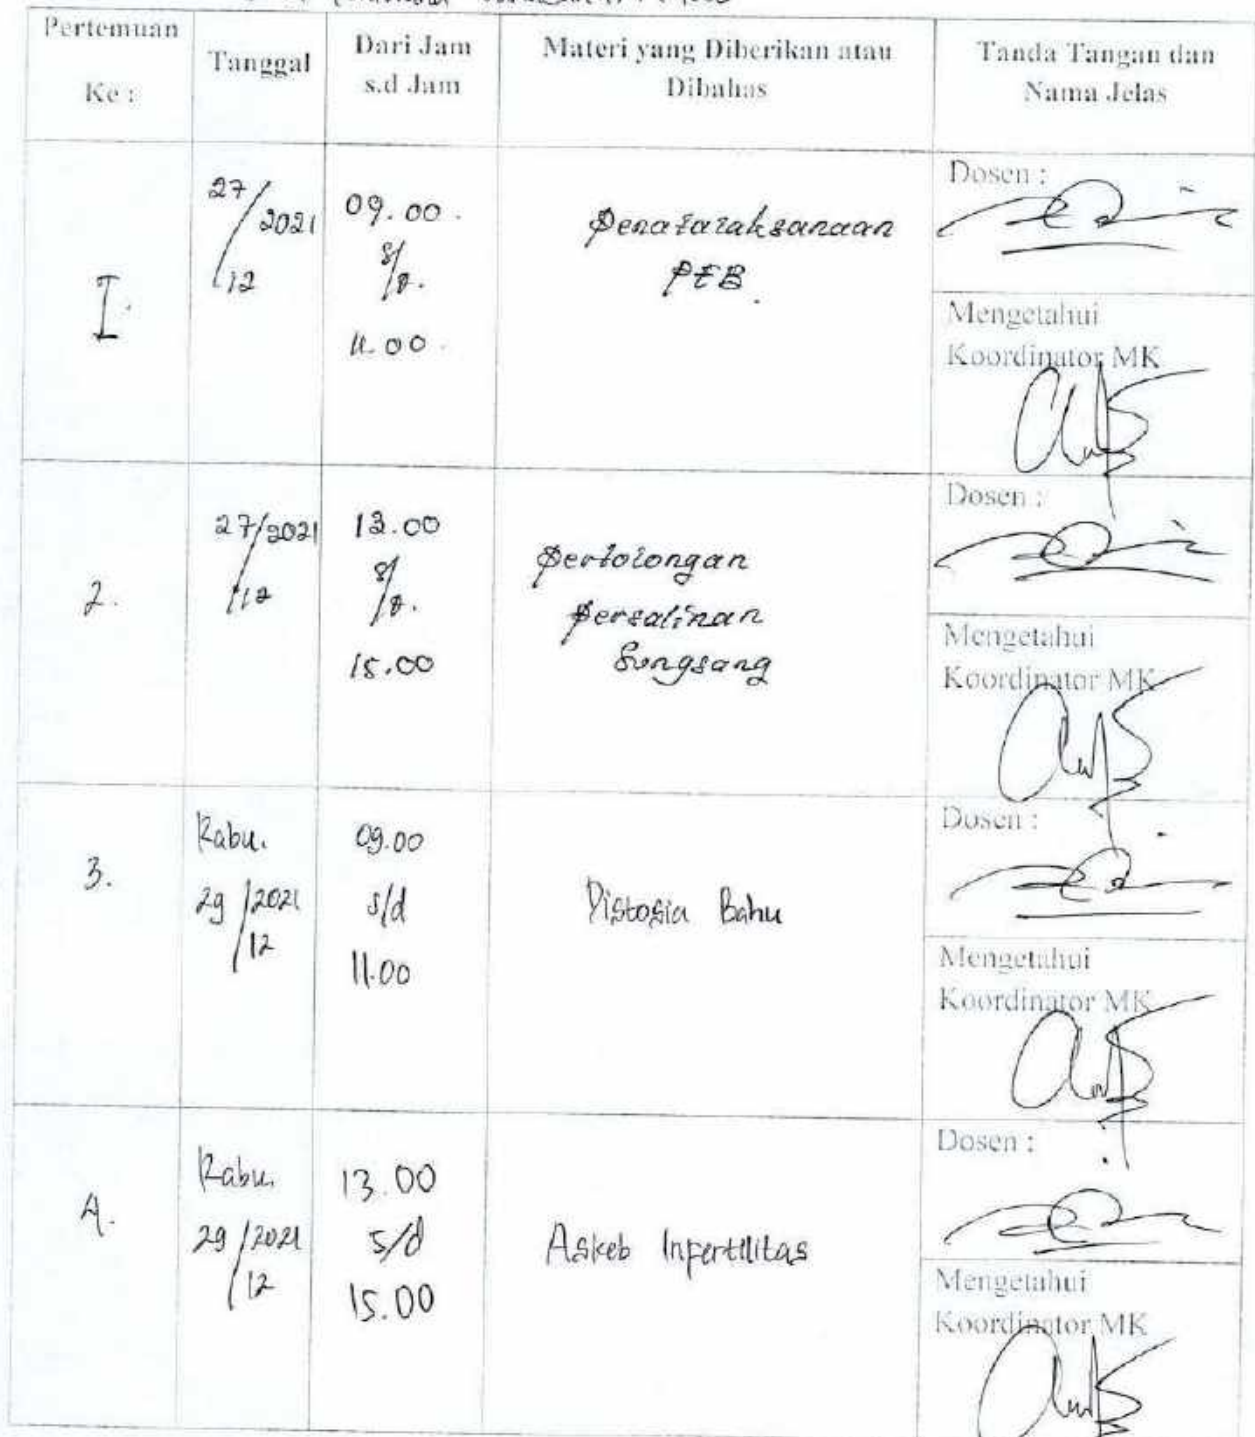 Pertemuan
Ke :
Tanggal
Dari Jam
s.d Jam
Materi yang Diberikan atau
Dibahas
Tanda Tangan dan
Nama Jelas
I.
27/12 2021
09.00.
s/d.
11.00.
Penatalaksanaan
PEB.
Dosen :
Mengetahui
Koordinator MK
2.
27/12 2021
13.00
s/d.
15.00
Pertolongan
Persalinan
Sungsang
Dosen :
Mengetahui
Koordinator MK
3.
Rabu.
29/12 2021
09.00
s/d
11.00
Distosia Bahu
Dosen :
Mengetahui
Koordinator MK
4.
Rabu.
29/12 2021
13.00
s/d
15.00
Askeb Infertilitas
Dosen :
Mengetahui
Koordinator MK